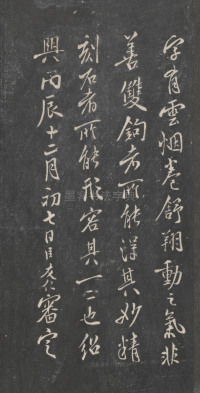 字有雲烟卷舒翔動之氣非
善雙鉤者所能得其妙精
刻石者所能形容其一二也紹
興丙辰十二月初七日臣審定